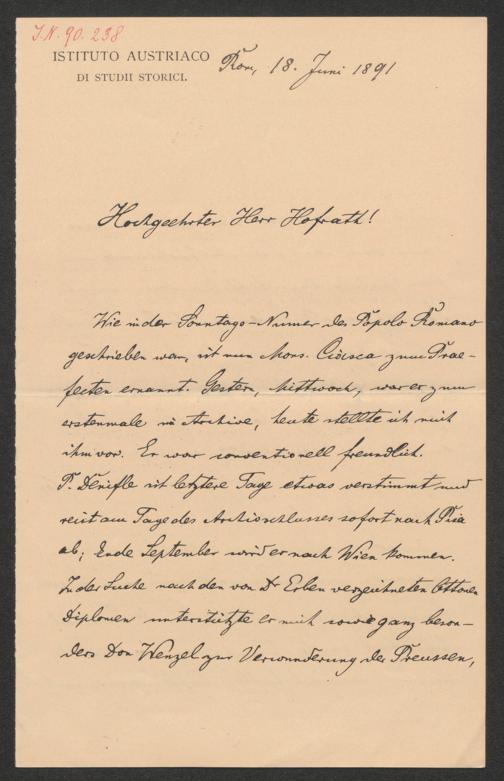 I.N. 90.238
ISTITUTO AUSTRIACO
DI STUDII STORICI.
Rom, 18. Juni 1891
Hochgeehrter Herr Hofrath!
Wie in der Sonntags-Numer des Popolo Romano
geschrieben war, ist nun Mons. Ciasca zum Prae-
fecten ernannt. Gestern, Mittwoch, war er zum
erstenmale im Archive, heute stellte ich mich
ihm vor. Er war conventionell freundlich.
P. Denifle ist letztere Tage etwas verstimmt und
reist am Tage des Archivschlusses sofort nach Pisa
ab; Ende September wird er nach Wien kommen.
In der Suche nach den von Dr Erben verzeichneten Ottonen
Diplomen unterstützte er mich sowie ganz beson-
ders Don Wenzel zur Verwunderung der Preussen,